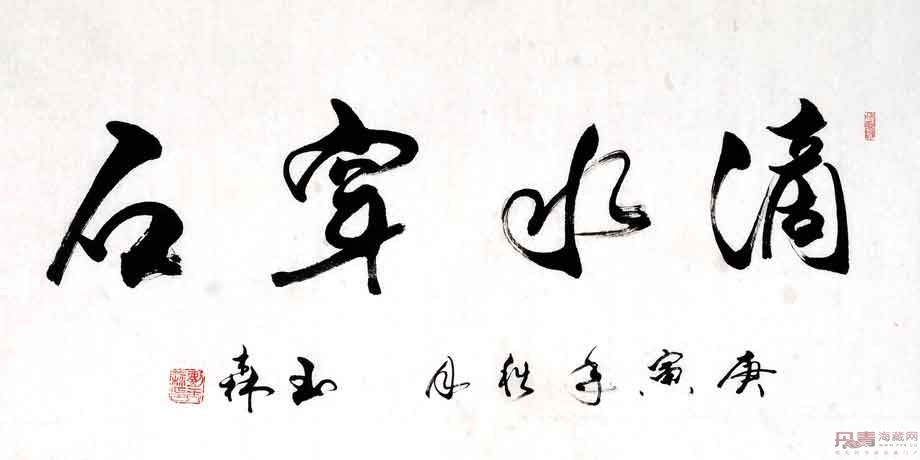 滴水穿石
庚寅年秋月 玉森
丹青海藏网